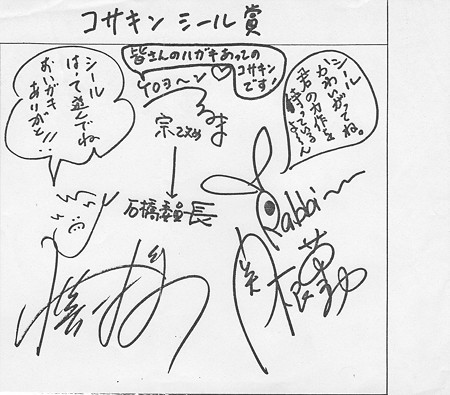 コサキン シール賞
皆さんのハガキあっての
コサキン
です!
シール
はって遊んでね
おハガキ
ありがと!!
シール
かわいがってね。
君の力作を
待っているよ〜ん
宗
石橋委員長
Rabbi
関根勤